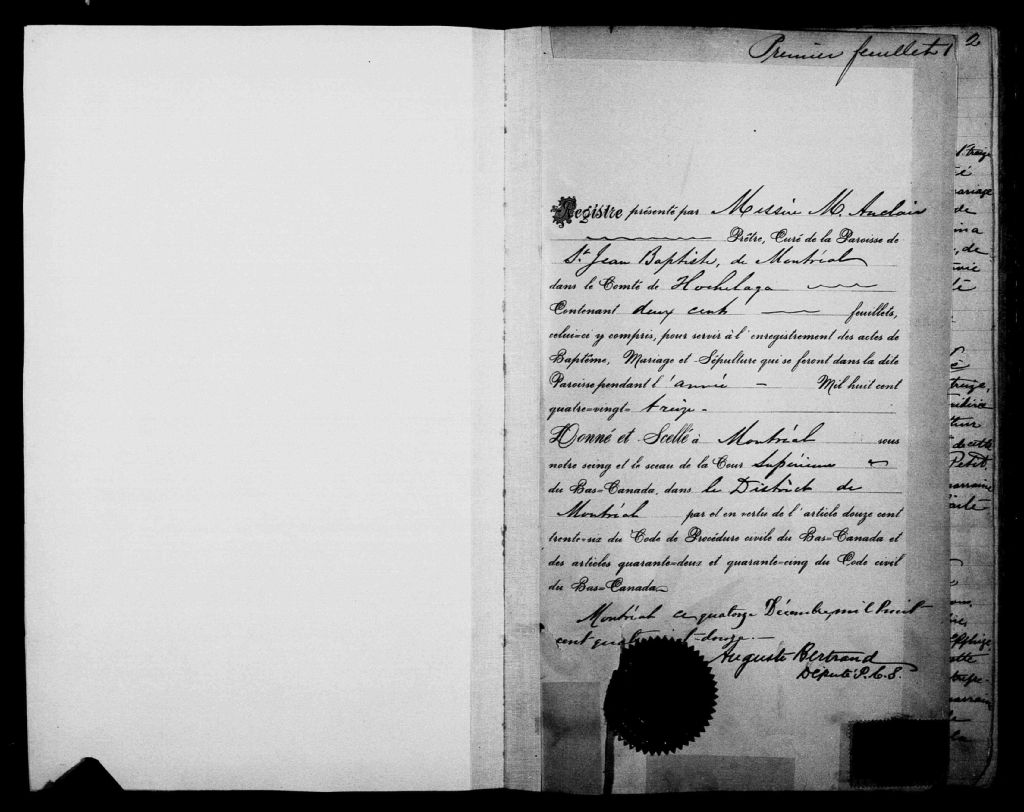 Premier feuillet 1
2
Registre présenté par Messire M. Auclair
Prêtre, Curé de la Paroisse de
St. Jean Baptiste, de Montréal
dans le Comté de Hochelaga
Contenant deux cent feuillets,
celui=ci y compris, pour servir à l'enregistrement des actes de
Baptême, Mariage et Sépulture qui se feront dans la dite
Paroisse pendant l'année Mil huit cent
quatre=vingt= treize.
Donné et Scellé à Montréal sous
notre seing et le sceau de la Cour Supérieure
du Bas=Canada, dans le District de
Montréal par et en vertu de l'article douze cent
trente=six du Code de Procédure civile du Bas=Canada et
des articles quarante=deux et quarante=cinq du Code civil
du Bas=Canada.
Montréal ce quatorze Décembre mil huit
cent douze.
Auguste Bertrand
Député P.C.S.
mariage
de
de
treize,
de cette
Petit,
marraine